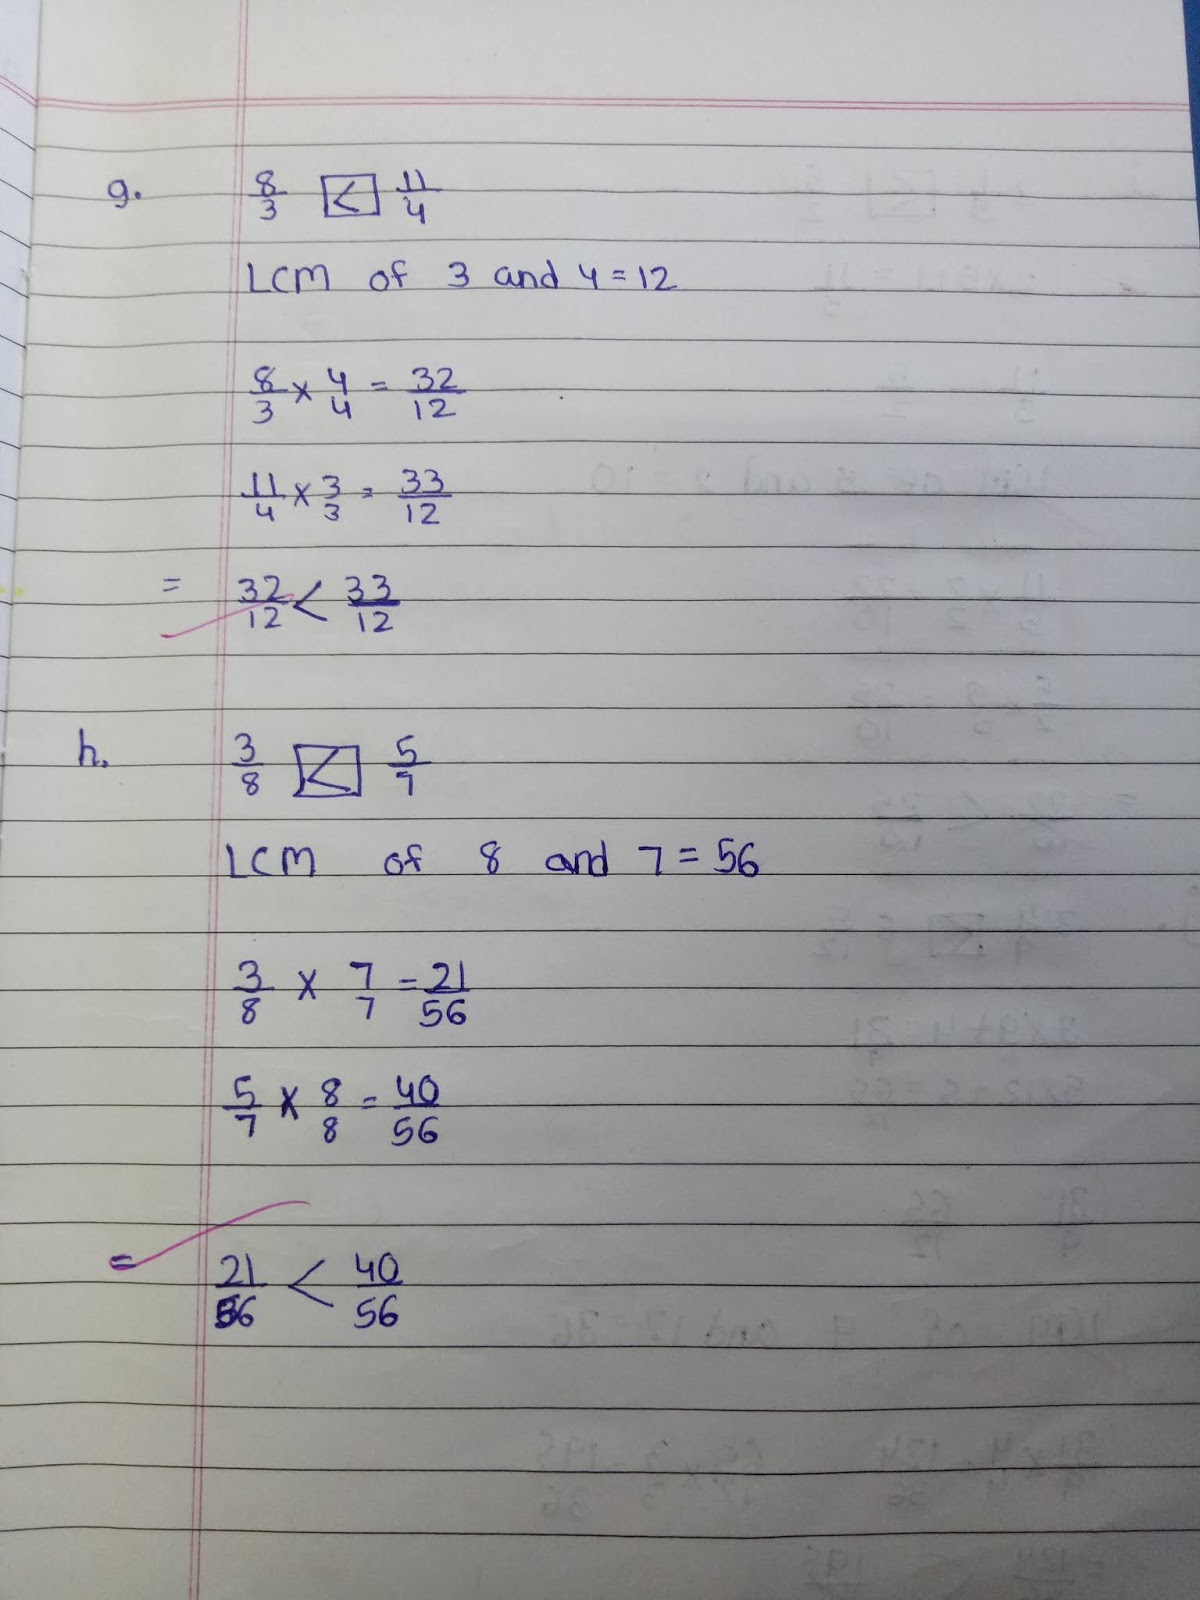 g. 8/3 [<] 11/4
LCM of 3 and 4 = 12
8/3 × 4/4 = 32/12
11/4 × 3/3 = 33/12
= 32/12 < 33/12
h. 3/8 [<] 5/7
LCM of 8 and 7 = 56
3/8 × 7/7 = 21/56
5/7 × 8/8 = 40/56
= 21/56 < 40/56